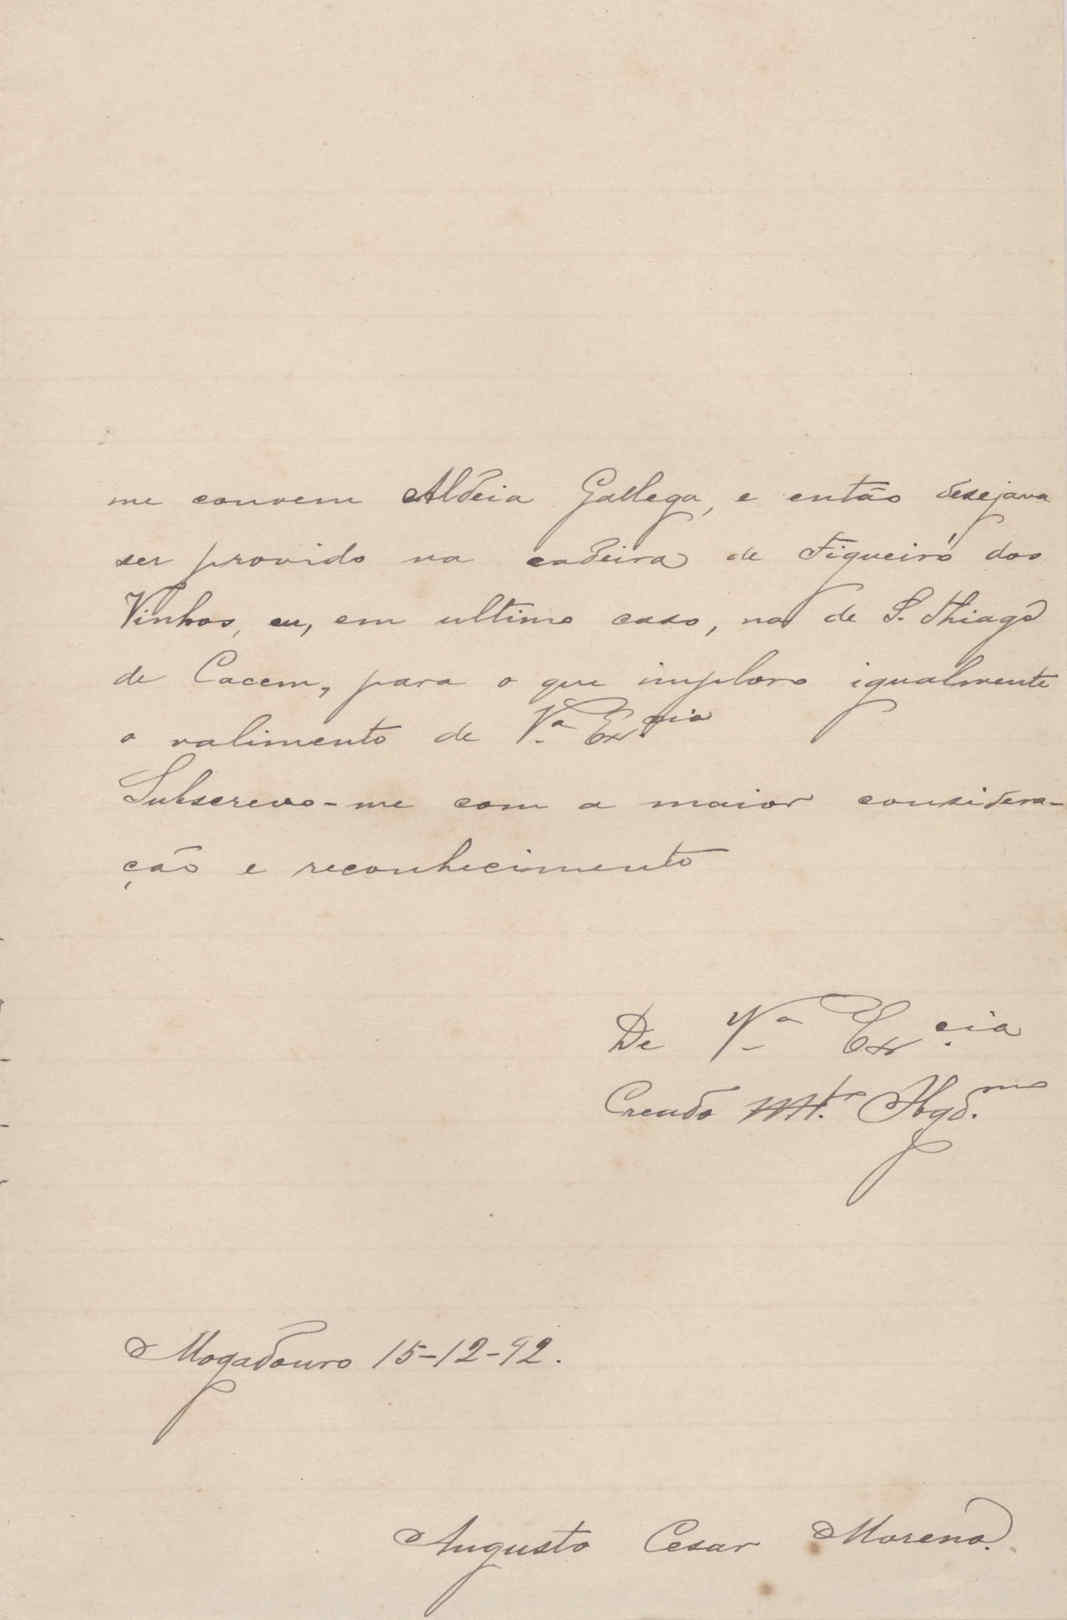 me convem Aldeia Gallega, e então desejava
ser provido na cadeira de Figueiró dos
Vinhos, ou, em ultimo caso, na de S. Thiago
de Cacem, para o que imploro igualmente
o valimento de V.ª Ex.cia
Subscrevo-me com a maior considera-
ção e reconhecimento
De V.ª Ex.cia
Creado Mt.º Obgd.mo
Mogadouro 15-12-92.
Augusto Cesar Moreno.